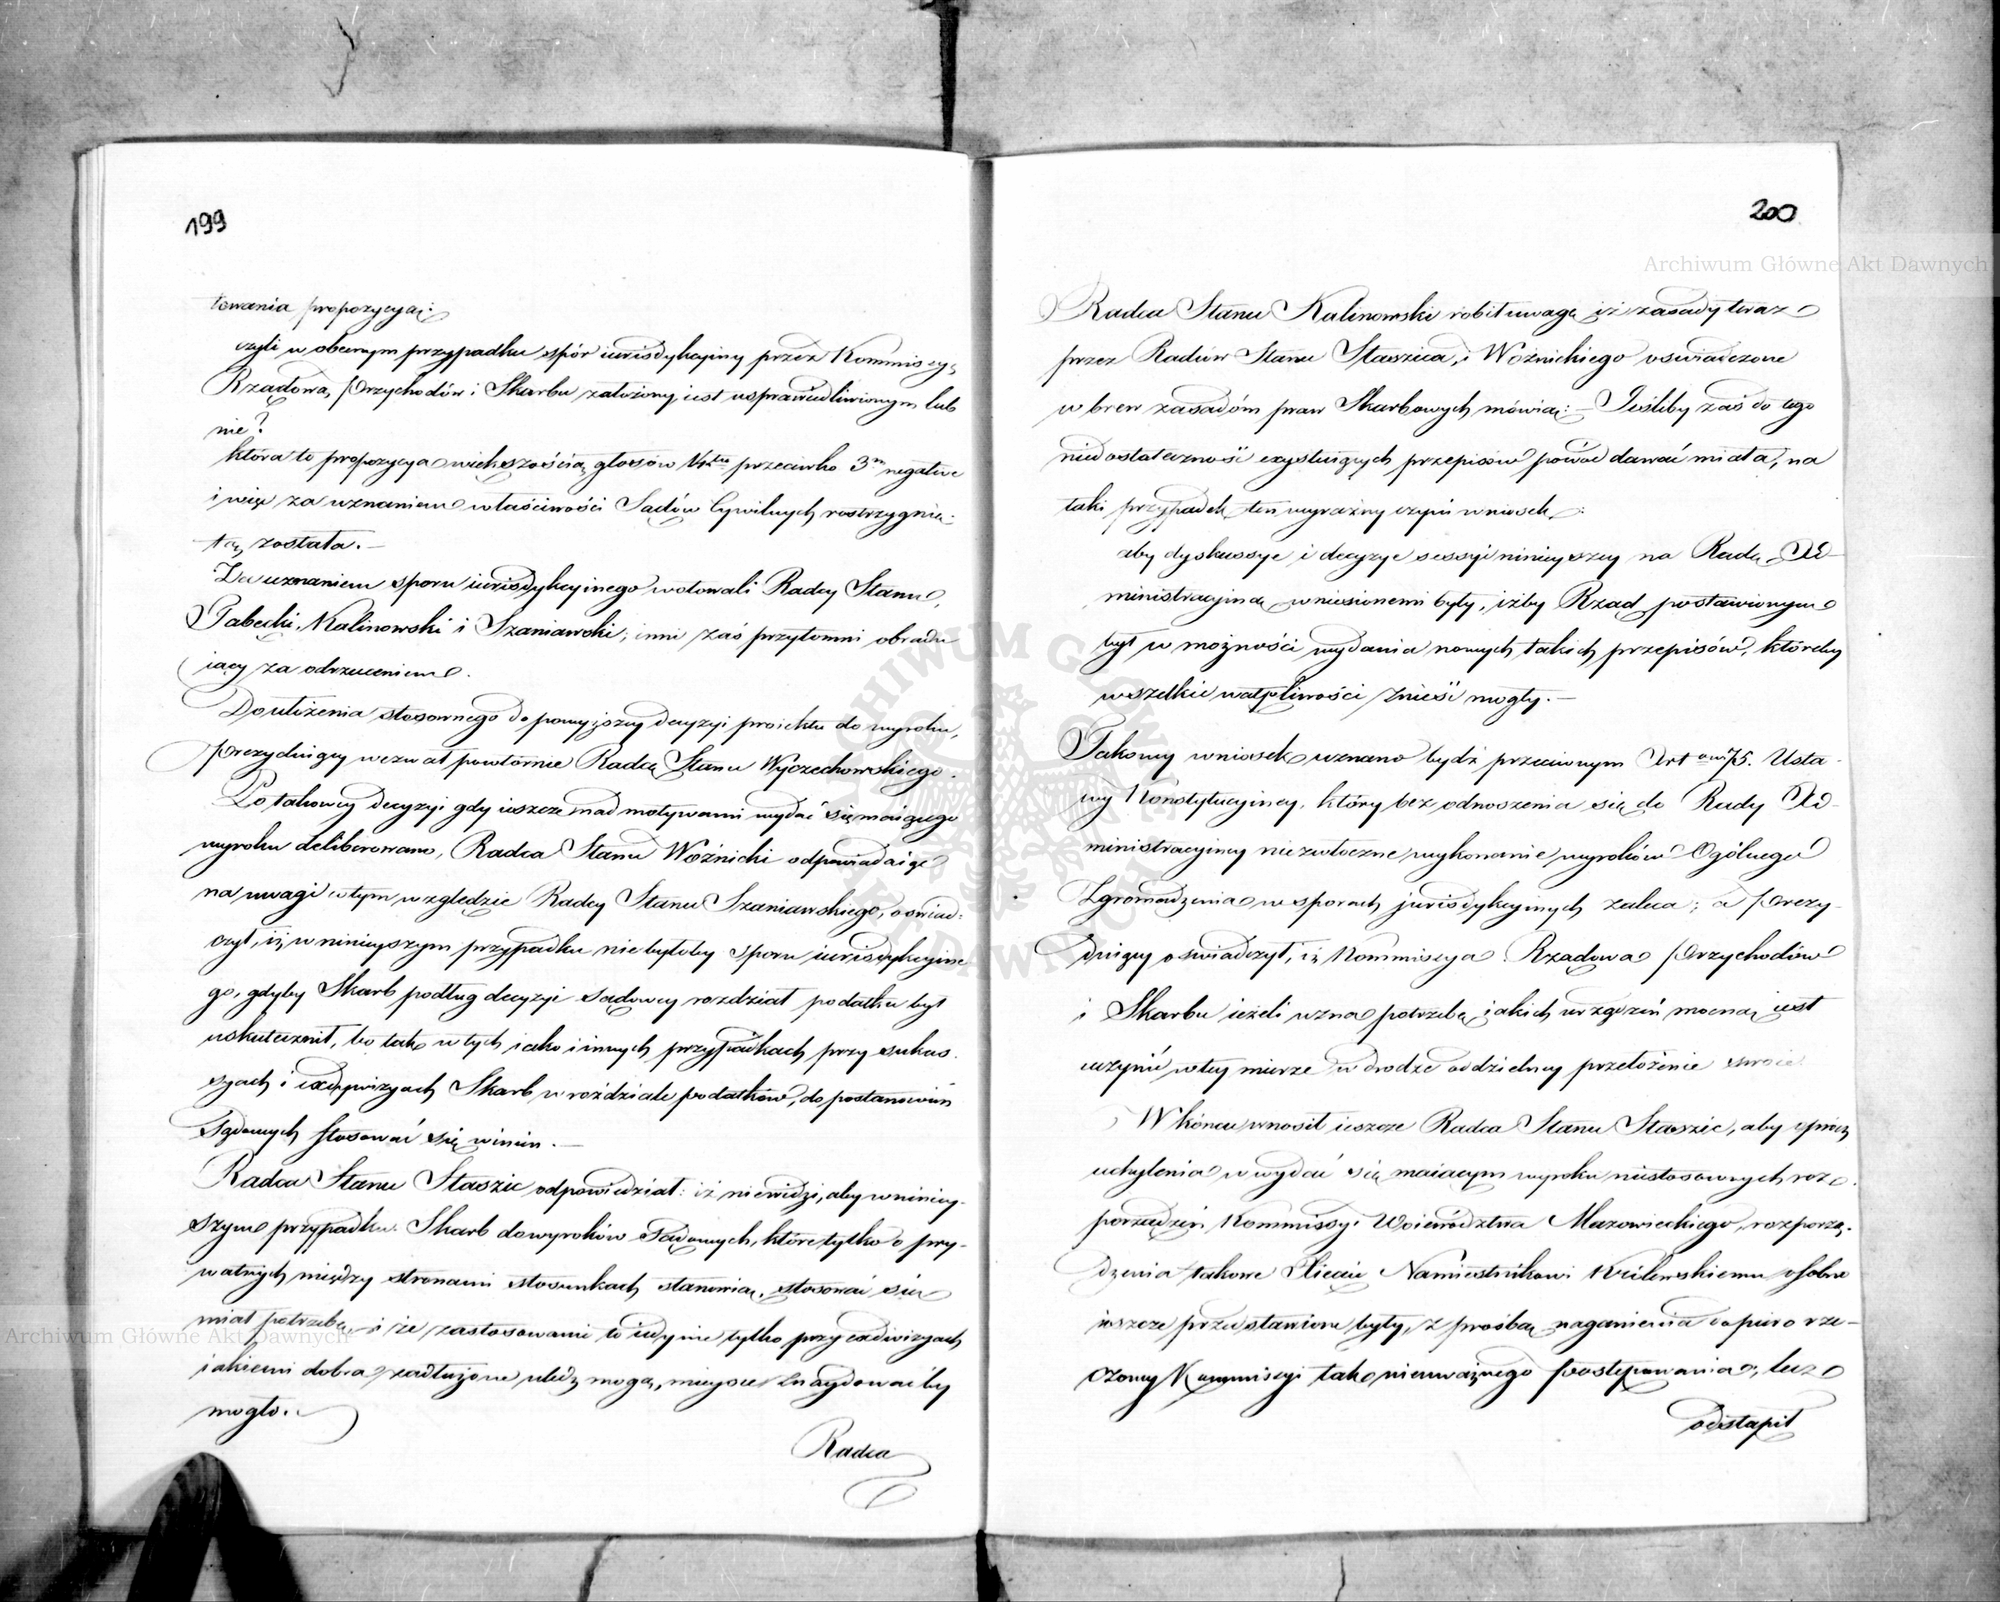 199
towania propozycyą:
czyli w obecnym przypadku spór iurisdykcyiny przez Kommissyę
Rządową Przychodów i Skarbu założony iest usprawiedliwionym lub
nie?
która to propozycya większością głosów przeciwko 3m negative
i więc za uznaniem właściwości Sądów Cywilnych rozstrzygnię-
tą została.—
Za uznaniem sporu iurisdykcyinego wotowali Radcy Stanu,
Tabecki, Kalinowski i Szaniawski; inni zaś przytomni obradu
iący za odrzuceniem.
Do ułożenia stosownego do powyższey decyzyi proiektu do wyroku,
Prezyduiący wezwał powtórnie Radcę Stanu Wyczechowskiego.
Po takowey decyzyi gdy ieszcze nad motywami wydać się maiącego
wyroku deliberowano, Radca Stanu Woźnicki odpowiadaiąc
na uwagi w tym względzie Radcy Stanu Szaniawskiego, oświad-
czył, iż w ninieyszym przypadku nie byłoby sporu iurisdykcyine
go, gdyby Skarb podług decyzyi sądowey rozdział podatku był
uskutecznił, bo tak w tych iako i innych przypadkach przy sukces-
syach i exdywizyach Skarb w rozdziale podatków, do postanowień
Sądowych stosować się winien.—
Radca Stanu Staszic odpowiedział: iż nie widzi, aby w niniey-
szym przypadku Skarb do wyroków Sądowych, które tylko o pry-
watnych między stronami stosunkach stanowią, stosować się
miał potrzebę, i że zastosowanie to iedynie tylko przy exdiwizyach
iakiemi dobra zadłużone uledz mogą, mieysce znaydować by
mogło.
Radca
200
Radca Stanu Kalinowski robił uwagę iż zasady teraz
przez Radców Stanu Staszica, i Woźnickiego oświadczone
wbrew zasadom praw Skarbowych mówią:— Jeśliby zaś do tego
niedostateczność exystuiących przepisów powód dawać miała, na
taki przypadek ten wyraźny czyni wniosek:
aby dyskussye i decyzye sessyi ninieyszey na Radę Ad-
ministracyiną wniesionemi były, iżby Rząd postawionym
był w możności wydania nowych takich przepisów, któreby
wszelkie wątpliwości znieść mogły.—
Takowy wniosek uznano bydź przeciwnym Artowi 75. Usta-
wy Konstytucyiney, który bez odnoszenia się do Rady Ad-
ministracyiney niezwłoczne wykonanie wyroków Ogólnego
Zgromadzenia w sporach jurisdykcyinych zaleca; a Prezy-
duiący oświadczył, iż Kommissya Rządowa Przychodów
i Skarbu ieżeli uzna potrzebę iakich urządzeń mocną iest
uczynić w tey mierze w drodze oddzielney przełożenie swoie.
W końcu wnosił ieszcze Radca Stanu Staszic, aby oprócz
uchylenia w wydać się maiącym wyroku niestosownych roz-
porządzeń Kommissyi Woiewództwa Mazowieckiego, rozporzą-
dzenia takowe Xięciu Namiestnikowi Królewskiemu osobno
ieszcze przedstawione były, z prośbą naganienia dopiero rze-
czoney Kommissyi tak nieuważnego postępowania; lecz
odstąpił
Archiwum Główne Akt Dawnych
Archiwum Główne Akt Dawnych